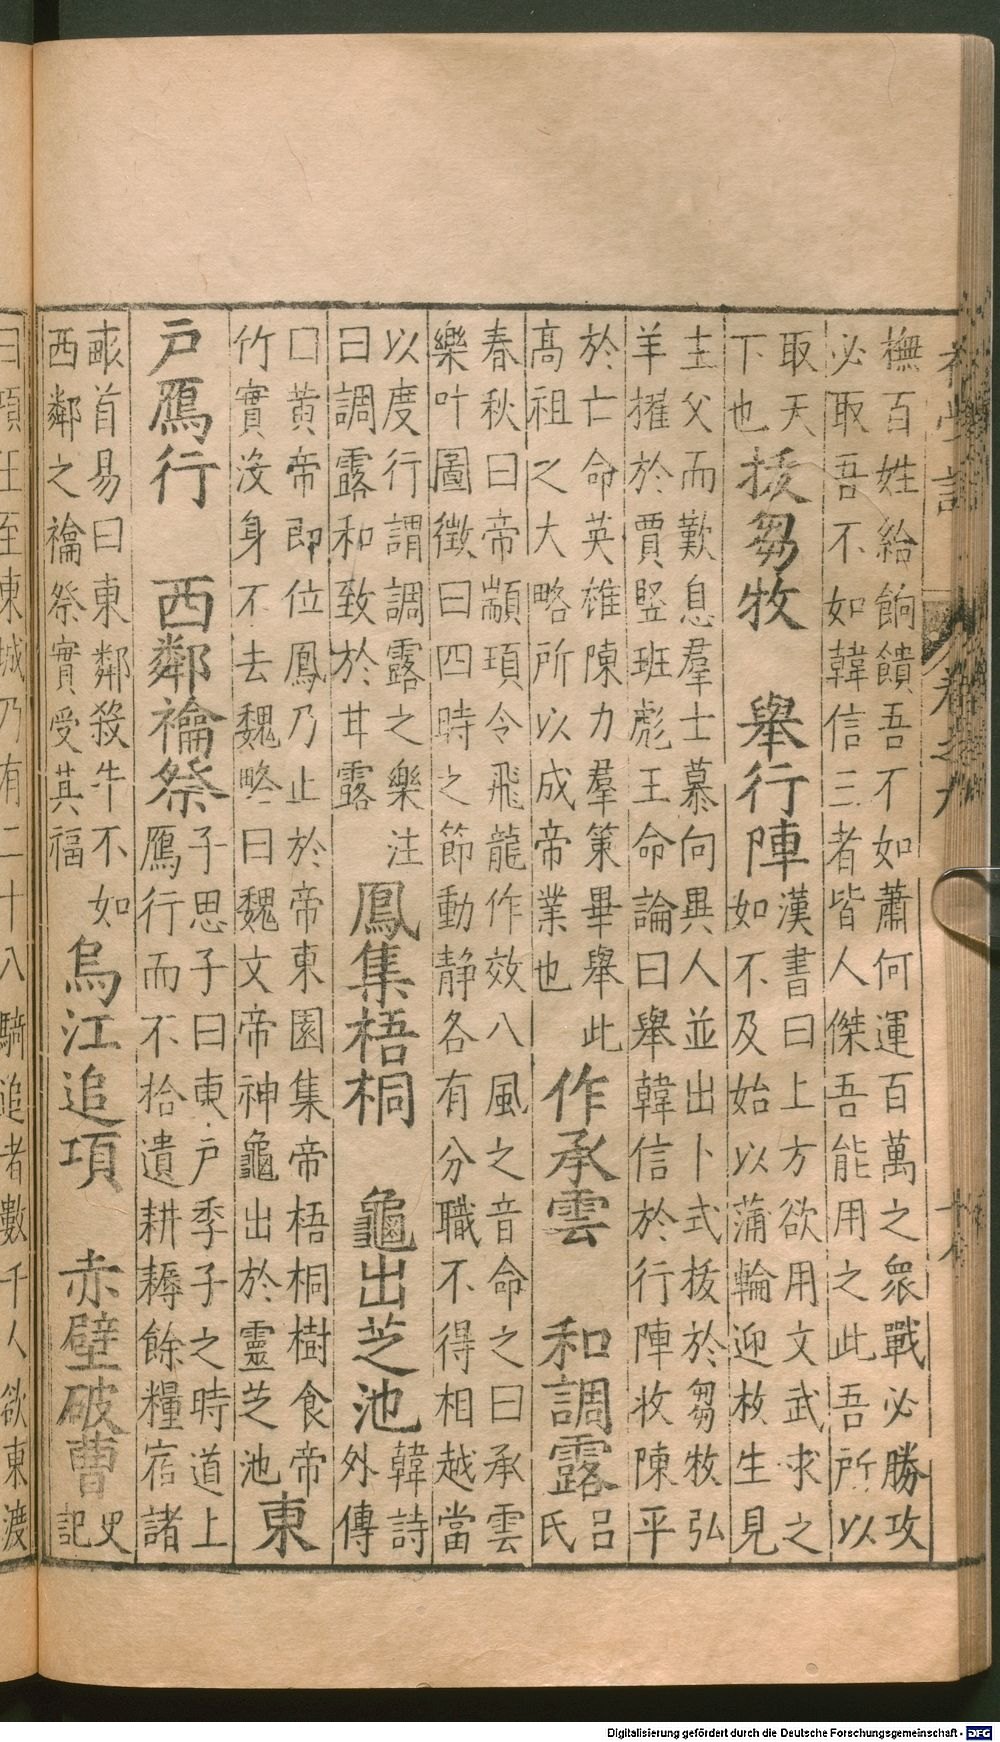 撫百姓給餉饋吾不如蕭何運百萬之衆戰必勝攻
必取吾不如韓信三者皆人傑吾能用之此吾所以
取天
下也
拔芻牧 舉行陣
漢書曰上方欲用文武求之
如不及始以蒲輪迎枚生見
主父而歎息羣士慕向異人並出卜式拔於芻牧弘
羊擢於賈豎班彪王命論曰舉韓信於行陣收陳平
於亡命英雄陳力羣策畢舉此
高祖之大略所以成帝業也
作承雲 和調露
呂
氏
春秋曰帝顓頊令飛龍作效八風之音命之曰承雲
樂叶圖徵曰四時之節動静各有分職不得相越當
以度行謂調露之樂注
曰調露和致於甘露
鳳集梧桐 龜出芝池
韓詩
外傳
囗黄帝即位鳳乃止於帝東園集帝梧桐樹食帝
竹實沒身不去魏略曰魏文帝神龜出於靈芝池
東
戶鴈行 西鄰禴祭
子思子曰東戶季子之時道上
鴈行而不拾遺耕耨餘糧宿諸
畝首易曰東鄰殺牛不如
西鄰之禴祭實受其福
烏江追項 赤壁破曹
史
記
曰項王至東城乃有二十八騎追者數千人欲東渡
卷之九
Digitalisierung gefördert durch die Deutsche Forschungsgemeinschaft - DFG